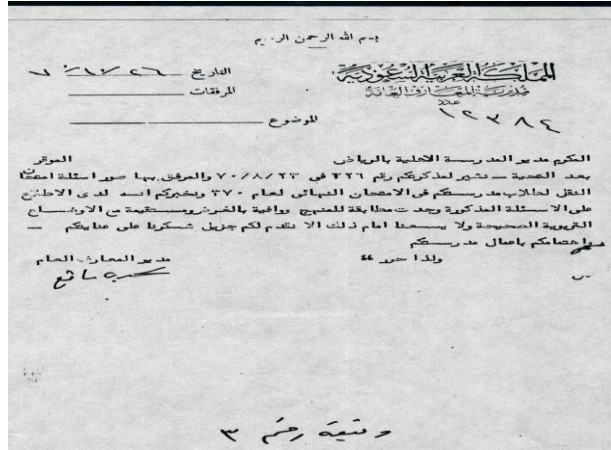 بسم الله الرحمن الرحيم
المملكة العربية السعودية
مديرية المعارف العامة
عدد
١٢٣٨٤
التاريخ ٢٦/١٠/٧٠
المرفقات
الموضوع
المكرم مدير المدرسة الاهلية بالرياض الموقر
بعد التحية – نشير لمذكرتكم رقم ٣٢٦ في ٧٠/٨/٢٣ والمرفق بها صور اسئلة امتحان
النقل لطلاب مدرستكم في الامتحان النهائي لعام ٣٧٠ ونخبركم انه لدى الاطلاع
على الاسئلة المذكورة وجدت مطابقة للمنهج ووافية بالغرض ومستقيمة مع الاوضاع
التربوية الصحيحة ولا يسعنا امام ذلك الا نقدم لكم جزيل شكرنا على عنايتكم –
واهتمامكم باعمال مدرستكم
ولذا حرر "
مدير المعارف العام
س
وثيقة رقم ٣